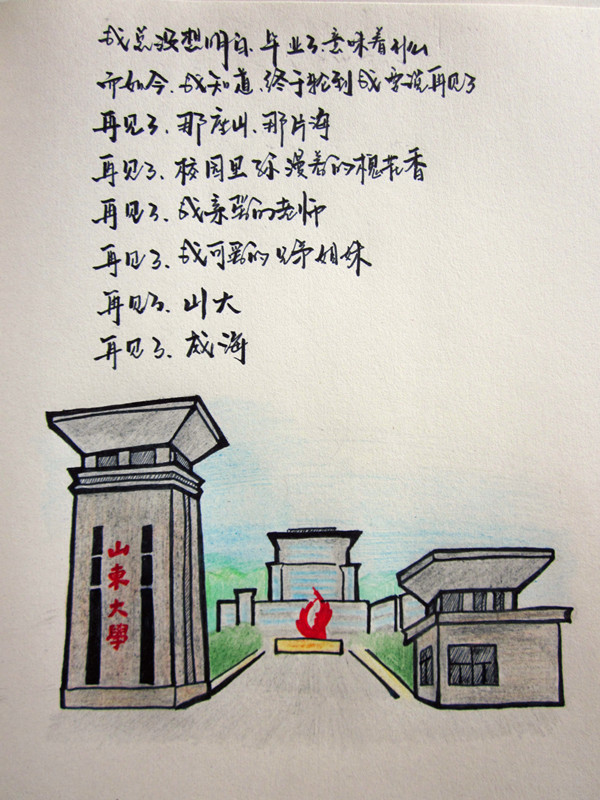 我总没想明白、毕业了、意味着什么
而如今、我知道、终于轮到我要说再见了
再见了、那座山、那片海
再见了、校园里弥漫着的槐花香
再见了、我亲爱的老师
再见了、我可爱的兄弟姐妹
再见了、山大
再见了、威海
山東大學